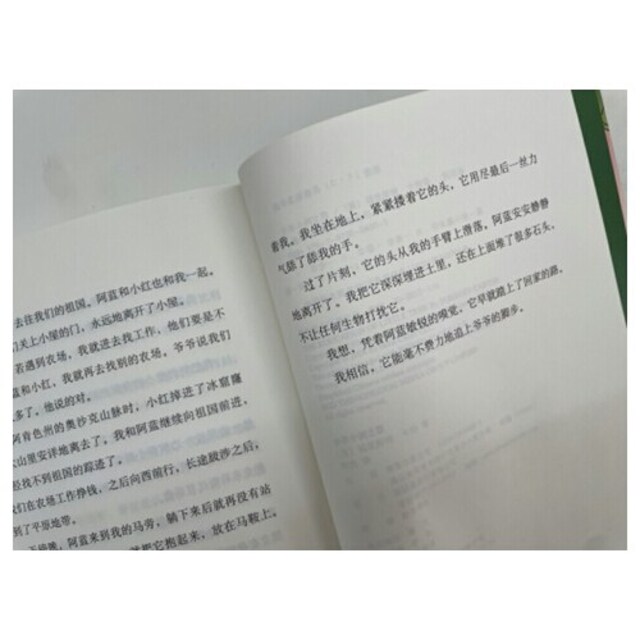 去往我们的祖国。阿蓝和小红也和我一起。
关上小屋的门，永远地离开了小屋。
若遇到农场，我就进去找工作，他们要是不
蓝和小红，我就再去找别的农场。爷爷说我们
多了，他说的对。
阿肯色州的奥沙克山脉时，小红掉进了冰窟窿
山里安详地离去了。我和阿蓝继续向祖国前进，
找不到祖国的踪迹了。
们在农场工作挣钱，之后向西前行，长途跋涉之后，
到了平原地带。
阿蓝来到我的马旁，躺下来后就再没有站
把它抱起来，放在马鞍上。
着我。我坐在地上，紧紧搂着它的头，它用尽最后一丝力
气舔了舔我的手。
过了片刻，它的头从我的手臂上滑落，阿蓝安安静静
地离开了。我把它深深埋进土里，还在上面堆了很多石头，
不让任何生物打扰它。
我想，凭着阿蓝敏锐的嗅觉，它早就踏上了回家的路。
我相信，它能毫不费力地追上爷爷的脚步。